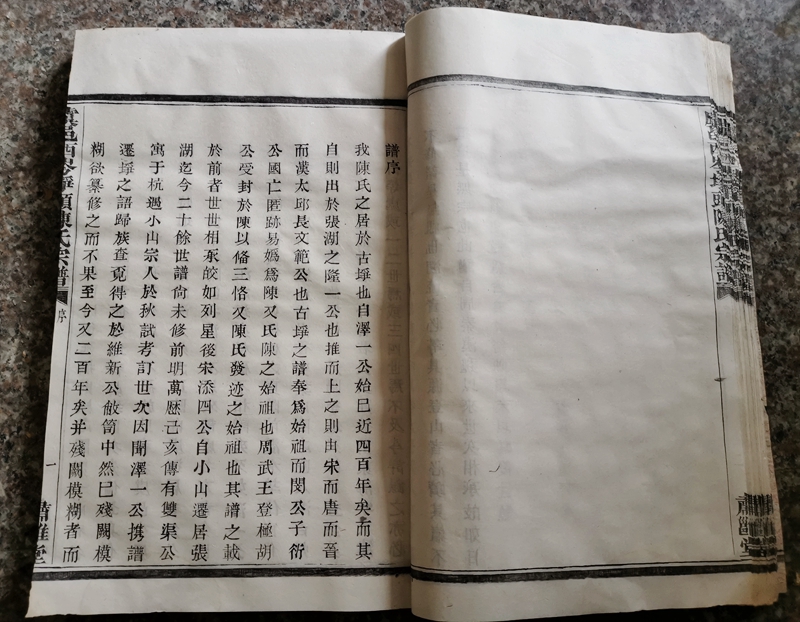 譜序
我陳氏之居於古埩也自澤一公始巳近四百年矣而其
自則出於張湖之隆一公也推而上之則由宋而唐而晉
而漢太邱長文範公也古埩之譜奉爲始祖而閔公子衍
公國亡匿跡易嬀爲陳又氏陳之始祖也周武王登極胡
公受封於陳以僃三恪又陳氏發迹之始祖也其譜之載
於前者世世相承皎如列星後宋添四公自小山遷居張
湖迄今二十餘世譜尙未修前明萬厯己亥傳有雙渠公
寓于杭遇小山宗人於狄試考訂世次因聞澤一公携譜
遷埩之語歸族查覓得之於維新公敝笥中然巳殘闕模
糊欲纂修之而不果至今又二百年矣并殘闕模糊者而
邑西 陳氏宗譜
序
一
肅雝堂
邑西 陳氏宗譜
肅雝堂